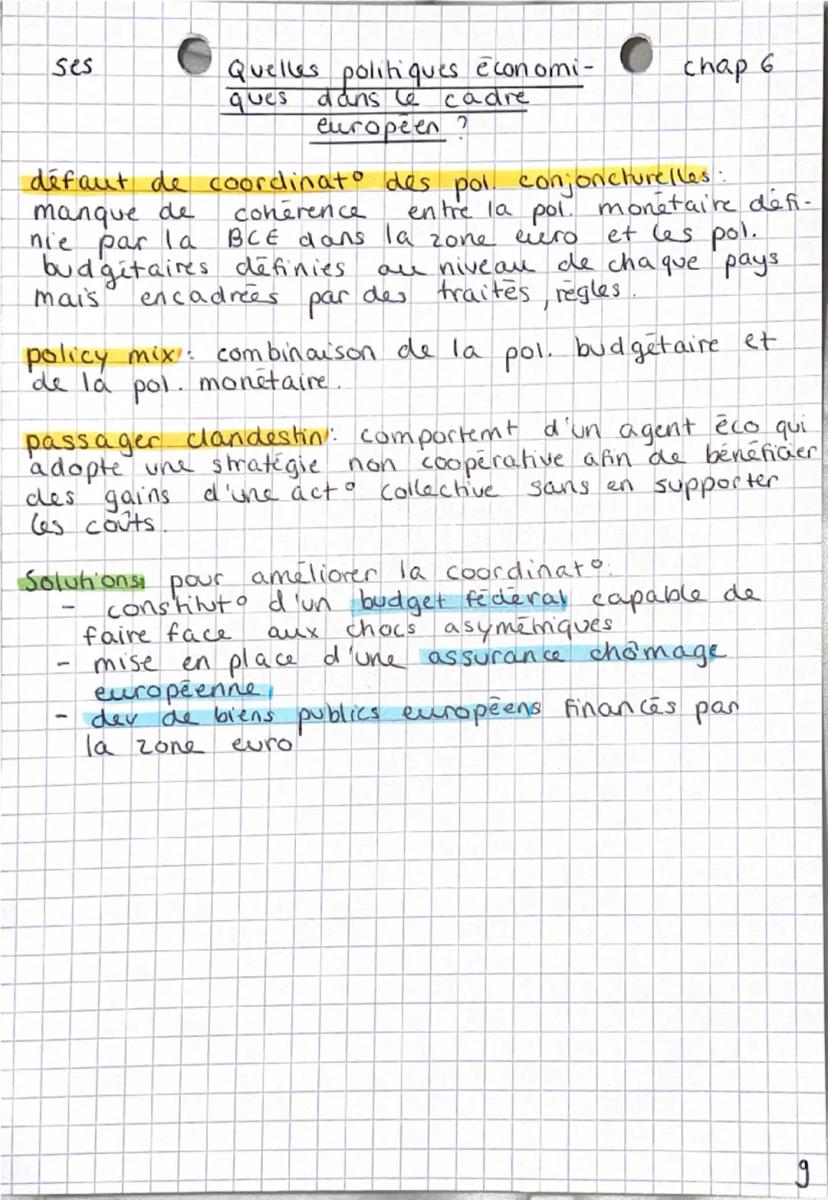 ses
Quelles politiques économi-
chap 6
ques dans le cadre
européen ?
défaut de coordinat° des pol. conjoncturelles :
manque de cohérence entre la pol. monétaire défi-
nie par la BCE dans la zone euro et les pol.
budgétaires définies au niveau de chaque pays
mais encadrées par des traités, règles.
policy mix : combinaison de la pol. budgétaire et
de la pol. monétaire.
passager clandestin : comportemt d'un agent éco qui
adopte une stratégie non coopérative afin de bénéficier
des gains d'une act° collective sans en supporter
les coûts.
Solutions pour améliorer la coordinat° :
- constitut° d'un budget fédéral capable de
faire face aux chocs asymétriques
- mise en place d'une assurance chômage
européenne
- dev de biens publics européens financés par
la zone euro
9